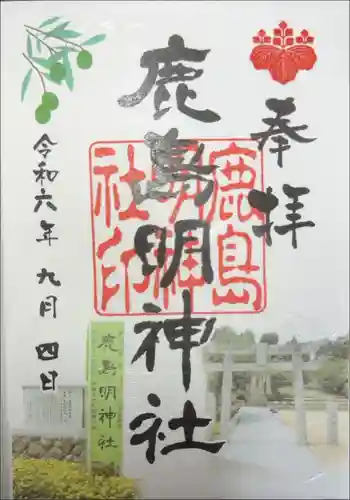 奉拝
鹿島明神社
鹿島明神社印
令和六年九月四日
鹿島明神社